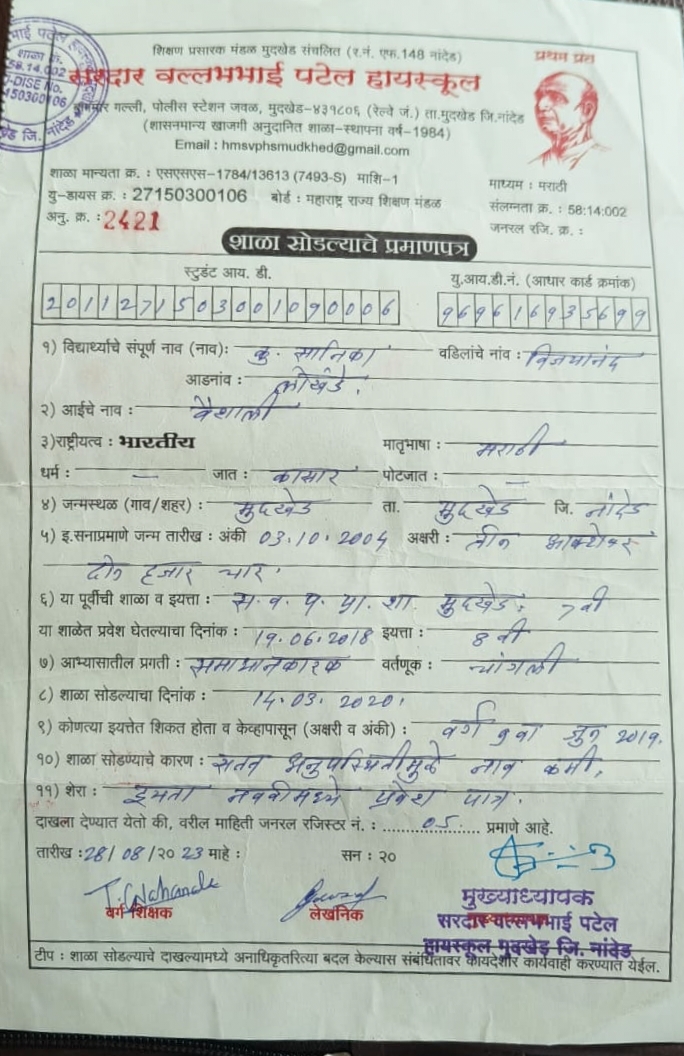 शिक्षण प्रसारक मंडळ मुदखेड संचलित (र.नं. एफ.148 नांदेड)
प्रथम प्रत
सरदार वल्लभभाई पटेल हायस्कूल
गल्ली, पोलीस स्टेशन जवळ, मुदखेड-४३१८०६ (रेल्वे जं.) ता.मुदखेड जि.नांदेड
(शासनमान्य खाजगी अनुदानित शाळा-स्थापना वर्ष-1984)
Email : hmsvphsmudkhed@gmail.com
शाळा मान्यता क्र. : एसएसएस-1784/13613 (7493-S) माशि-1
माध्यम : मराठी
यु-डायस क्र. : 27150300106 बोर्ड : महाराष्ट्र राज्य शिक्षण मंडळ
संलग्नता क्र. : 58:14:002
अनु. क्र. : 2421
जनरल रजि. क्र. :
शाळा सोडल्याचे प्रमाणपत्र
स्टुडंट आय. डी.
यु.आय.डी.नं. (आधार कार्ड क्रमांक)
2011271503001090006
969616935699
१) विद्यार्थ्याचे संपूर्ण नाव (नाव): कु. सानिका वडिलांचे नांव : विजयानंद
आडनांव : लोखंडे.
२) आईचे नाव : वैशाली
३)राष्ट्रीयत्व : भारतीय मातृभाषा : मराठी
धर्म : — जात : कासार पोटजात : —
४) जन्मस्थळ (गाव/शहर) : मुदखेड ता. मुदखेड जि. नांदेड
५) इ.सनाप्रमाणे जन्म तारीख : अंकी 03.10.2004 अक्षरी : तीन आक्टोबर
दोन हजार चार.
६) या पूर्वीची शाळा व इयत्ता : स.व.प.प्रा.शा. मुदखेड. 7 वी
या शाळेत प्रवेश घेतल्याचा दिनांक : 19.06.2018 इयत्ता : 8 वी
७) आभ्यासातील प्रगती : समाधानकारक वर्तणूक : चांगली
८) शाळा सोडल्याचा दिनांक : 14.03.2020.
९) कोणत्या इयत्तेत शिकत होता व केव्हापासून (अक्षरी व अंकी) : वर्ग 9 वा जून 2019.
१०) शाळा सोडण्याचे कारण : सतत अनुपस्थितीमुळे नाव कमी.
११) शेरा : इयत्ता नववीमध्ये प्रवेश पात्र.
दाखला देण्यात येतो की, वरील माहिती जनरल रजिस्टर नं. : ..............05........... प्रमाणे आहे.
तारीख : 28/08/२० 23 माहे : सन : २०
वर्ग शिक्षक
लेखनिक
मुख्याध्यापक
सरदार वल्लभभाई पटेल
हायस्कूल मुदखेड जि. नांदेड
टीप : शाळा सोडल्याचे दाखल्यामध्ये अनाधिकृतरित्या बदल केल्यास संबंधितावर कायदेशीर कार्यवाही करण्यात येईल.